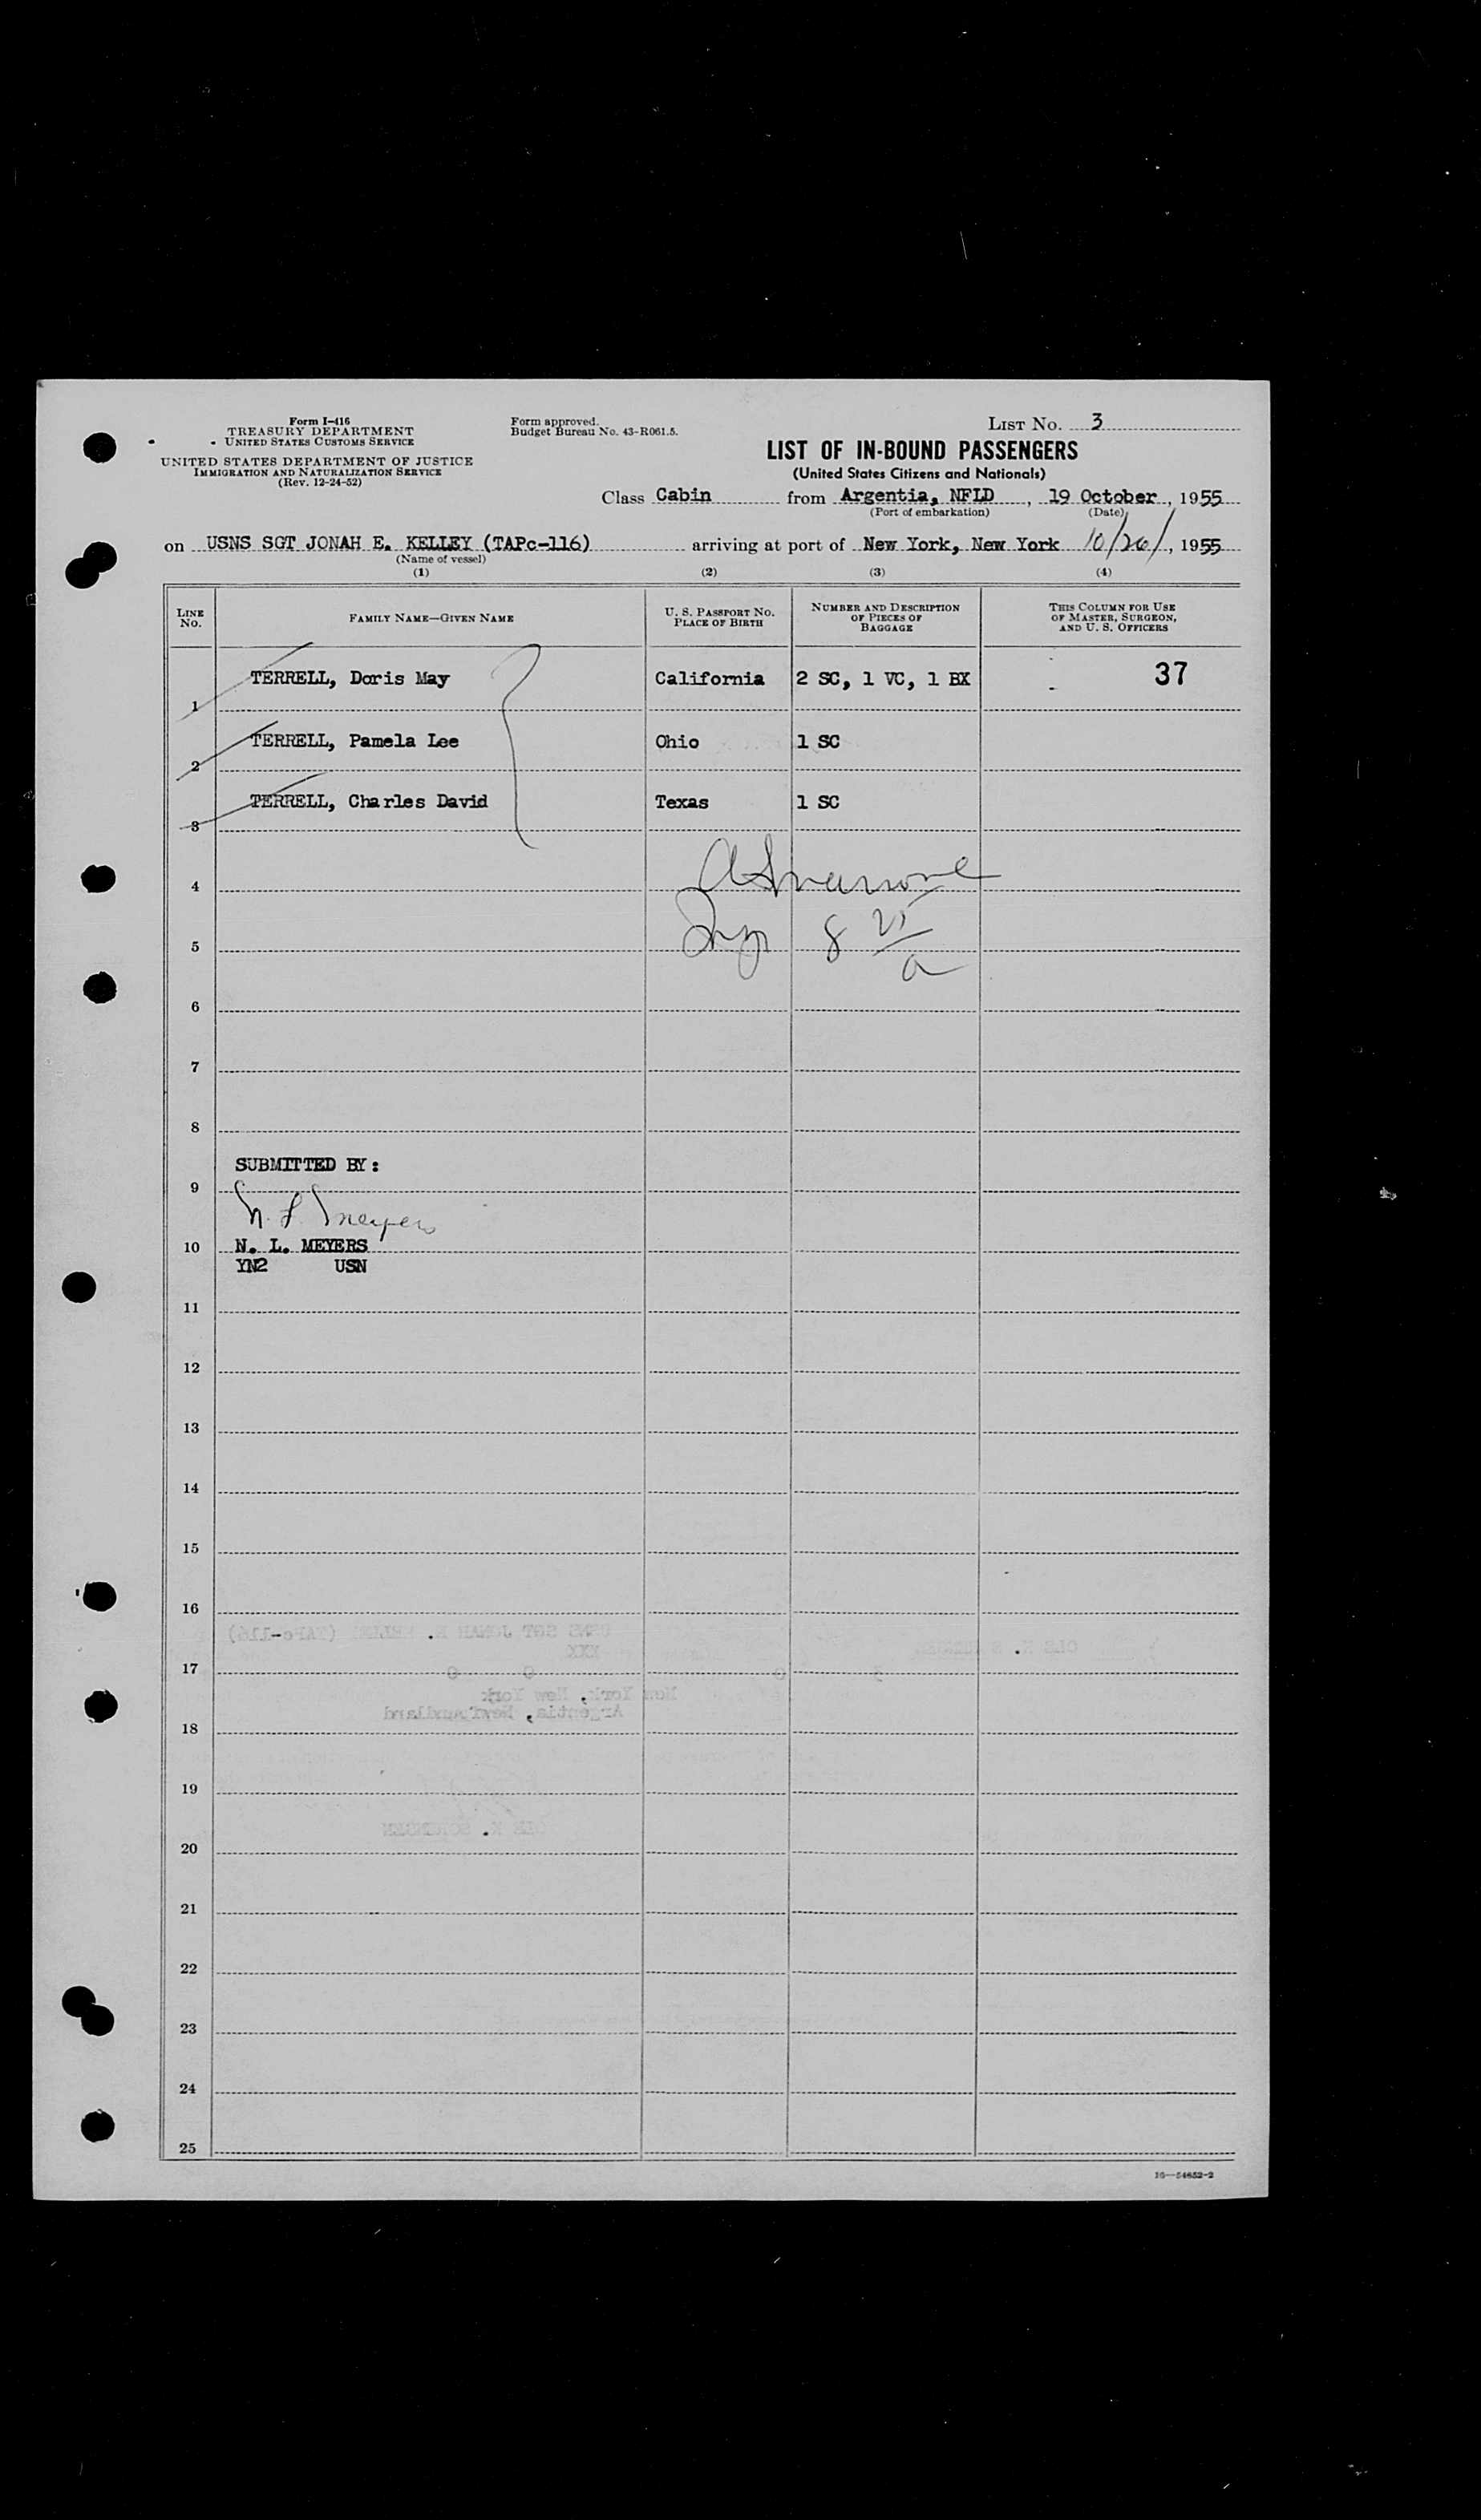 Form I-416
TREASURY DEPARTMENT
UNITED STATES CUSTOMS SERVICE
UNITED STATES DEPARTMENT OF JUSTICE
IMMIGRATION AND NATURALIZATION SERVICE
(Rev. 12-24-52)
Form approved.
Budget Bureau No. 43-R061.5.
LIST No. 3
LIST OF IN-BOUND PASSENGERS
(United States Citizens and Nationals)
Class Cabin from Argentia, NFLD, 19 October, 1955
(Port of embarkation) (Date)
on USNS SGT JONAH E. KELLEY (TAPc-116) arriving at port of New York, New York 10/26/, 1955
(Name of vessel)
(1) (2) (3) (4)
LINE No. FAMILY NAME—GIVEN NAME U. S. PASSPORT No. PLACE OF BIRTH NUMBER AND DESCRIPTION OF PIECES OF BAGGAGE THIS COLUMN FOR USE OF MASTER, SURGEON, AND U. S. OFFICERS
1 TERRELL, Doris May California 2 SC, 1 VC, 1 BX 37
2 TERRELL, Pamela Lee Ohio 1 SC
3 TERRELL, Charles David Texas 1 SC
4
5
6
7
8
SUBMITTED BY:
9
N. L. Meyers
10 N. L. MEYERS
YN2 USN
11
12
13
14
15
16
17
18
19
20
21
22
23
24
25
16—54652-2